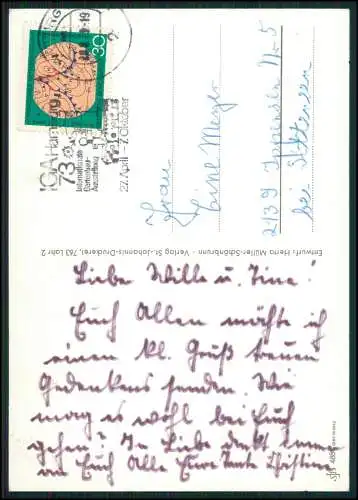 30
IGA Hamburg
73
Internationale
Gartenbau-
Ausstellung
27. April - 7. Oktober
Frau
Meyer
2139 Ippensen Nr. 5
bei Sittensen
Entwurf: Herta Müller-Schönbrunn · Verlag St.-Johannis-Druckerei, 763 Lahr 2
Liebe Wille u. Tine!
Euch Allen möchte ich
einen kl. Gruß treuen
Gedenkens senden. Wie
mag es wohl bei Euch
gehen? In Liebe denkt immer
an Euch Alle Eure Tante Christine